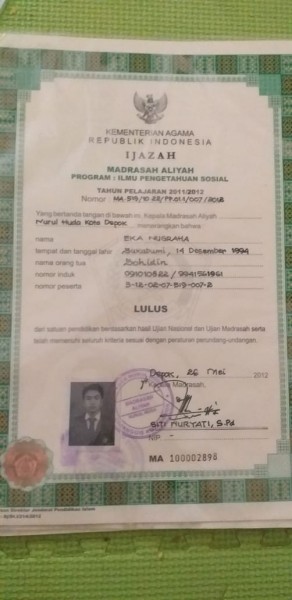 KEMENTERIAN AGAMA
REPUBLIK INDONESIA
IJAZAH
MADRASAH ALIYAH
PROGRAM : ILMU PENGETAHUAN SOSIAL
TAHUN PELAJARAN 2011/2012
Nomor :
Yang bertanda tangan di bawah ini, Kepala Madrasah Aliyah
Nurul Huda Kota Depok menerangkan bahwa:
nama EKA NUGRAHA
tempat dan tanggal lahir Sukabumi, 14 Desember 1994
nama orang tua Sohidin
nomor induk
nomor peserta
LULUS
dari satuan pendidikan berdasarkan hasil Ujian Nasional dan Ujian Madrasah serta
telah memenuhi seluruh kriteria sesuai dengan peraturan perundang-undangan.
Depok, 26 Mei 2012
Kepala Madrasah,
SITI NURYATI, S.Pd
NIP -
MA 100002898